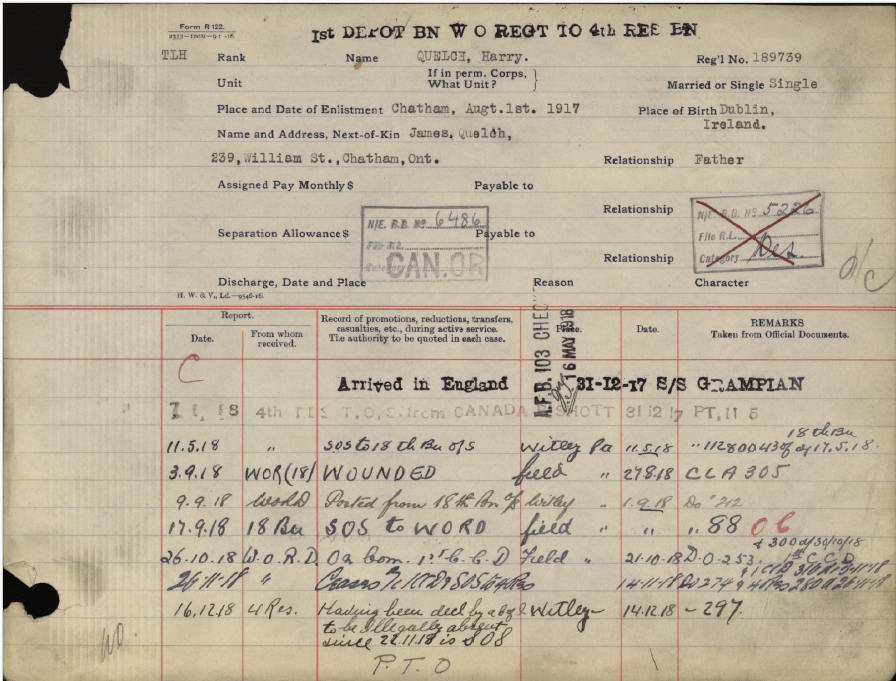 Form R 122.
1ST DEPOT BN W O REGT TO 4th RES BN
TLH Rank Name QUELCH, Harry. Reg'l No. 189739
Unit If in perm. Corps, What Unit? Married or Single Single
Place and Date of Enlistment Chatham, Augt.1st. 1917 Place of Birth Dublin, Ireland.
Name and Address, Next-of-Kin James, Quelch,
239, William St., Chatham, Ont. Relationship Father
Assigned Pay Monthly $ Payable to
Relationship
N/E. R.B. No 6486
N/E. R.B. No 5226
Separation Allowance $ Payable to
File R.L.
File R.L.
Relationship
Category CAN.OR
Category Des.
O/C
Discharge, Date and Place Reason Character
H. W. & V., Ld.—9546-16.
Report. Record of promotions, reductions, transfers, casualties, etc., during active service. The authority to be quoted in each case. Place. Date. REMARKS Taken from Official Documents.
Date. From whom received.
A.F.B. 103 16 MAY 1918
C
Arrived in England 31-12-17 S/S GRAMPIAN
18 4th RES T.O.S. from CANADA 31 12 17 PT, II 5
18th Bn
11.5.18 " SOS to 18th Bn O/S Witley Pa 11.5.18 17.5.18.
3.9.18 WOR(18) WOUNDED field " 27 8 18 CLA 305
9.9.18 Posted from 18th Bn Witley 1.9.18 Do 212
17.9.18 18 Bn SOS to WORD field " " " 88 OC
& 300 d/30/10/18
26.10.18 W.O.R.D. On Com. 1st C.C.D Field " 21-10-18 D.O. 253, 1st C C D
26-11-18 " 14-11-18 Do 274 & 4 Res 280 d 26-11-18
16.12.18 4 Res. Having been decl by Witley- 14.12.18 - 297.
to be illegally absent
since 22.11.18 is SOS
P.T.O